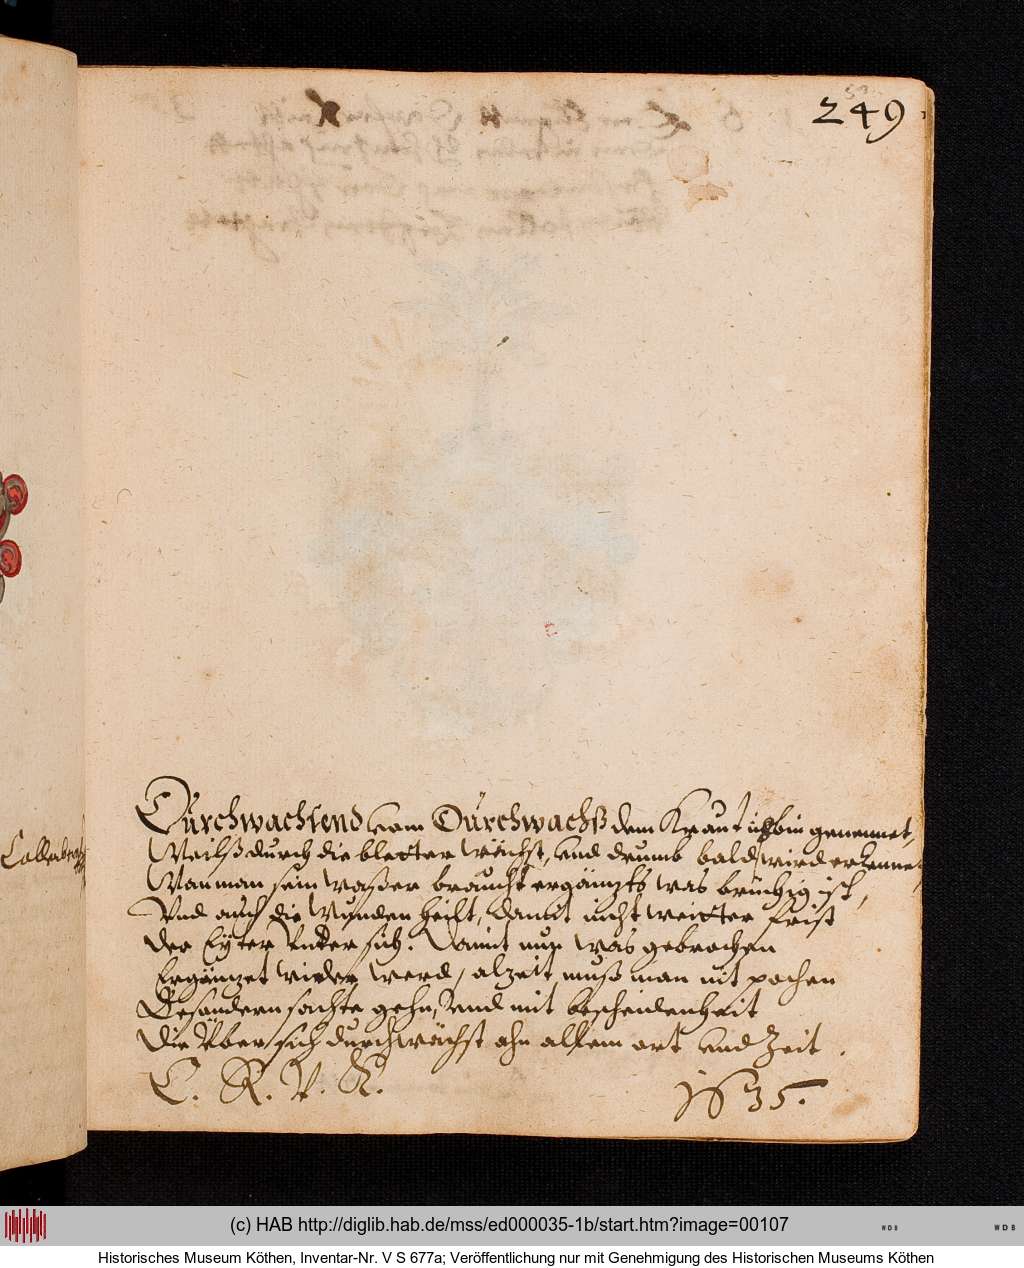 249
Durchwachsend vom Durchwachß dem Kraut ich bin genennet,
Weilß durch die bletter wächst, vnd drumb bald wird erkennet,
Wan man sein waßer braucht ergäntzts was brüchig ist,
Vnd auch die wunden heilt, damit nicht weitter frist
der Eyter Vnter sich. Damit nun was gebrochen
Ergäntzet wieder werd, alzeit muß man nit pochen
Besondern sachte gehn, Vnd mit bescheidenheit
Die Vber sich durchwächst ahn allem ort vnd Zeit.
C. K. V. K.
1635.
(c) HAB http://diglib.hab.de/mss/ed000035-1b/start.htm?image=00107
WDB
WDB
Historisches Museum Köthen, Inventar-Nr. V S 677a; Veröffentlichung nur mit Genehmigung des Historischen Museums Köthen